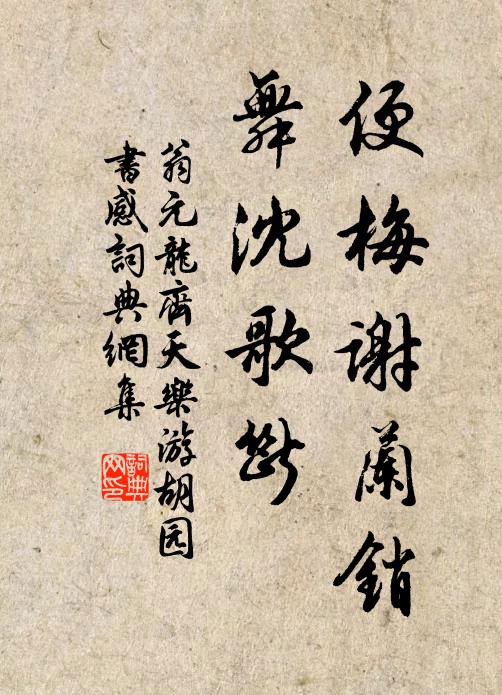 便梅谢蘭銷
舞沈歌斷
翁元龍齊天樂游胡园
書感詞典網集
詞典网印